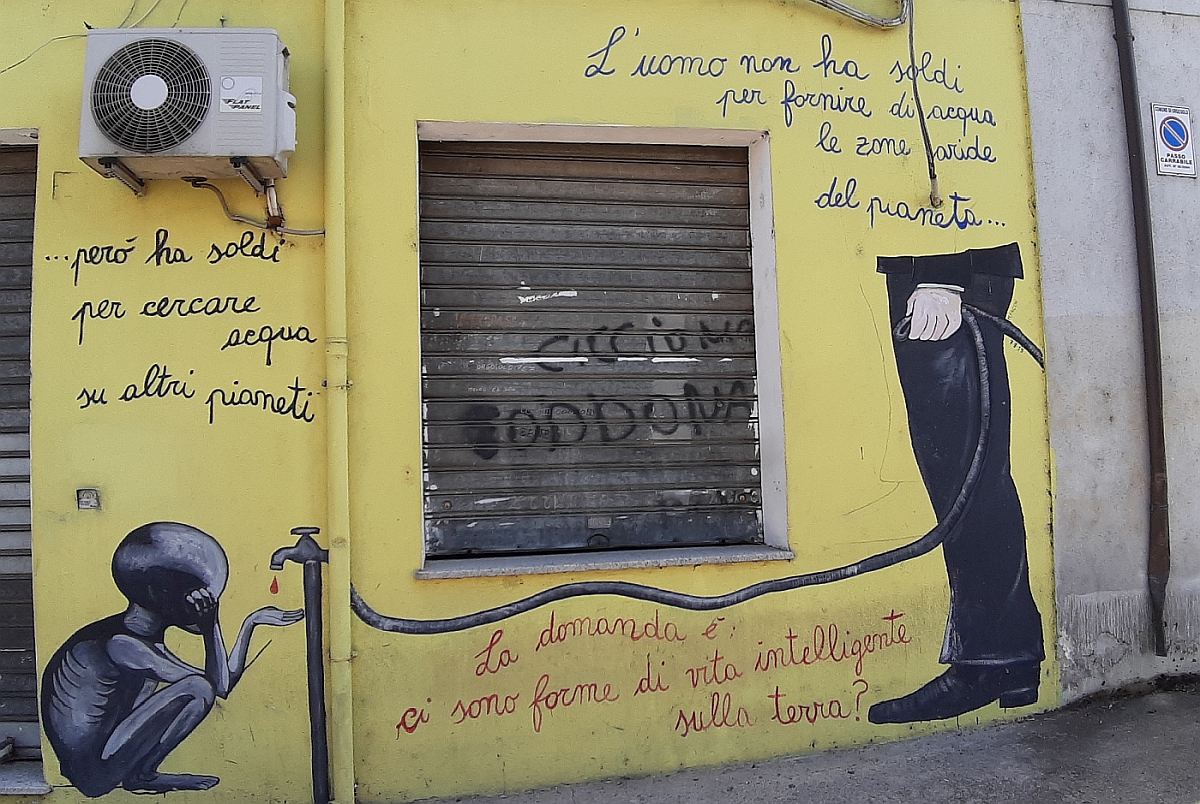 L'uomo non ha soldi
per fornire di acqua
le zone aride
del pianeta...
...però ha soldi
per cercare
acqua
su altri pianeti
La domanda è:
ci sono forme di vita intelligente
sulla terra?
FLAT
PANEL
PASSO
CARRABILE